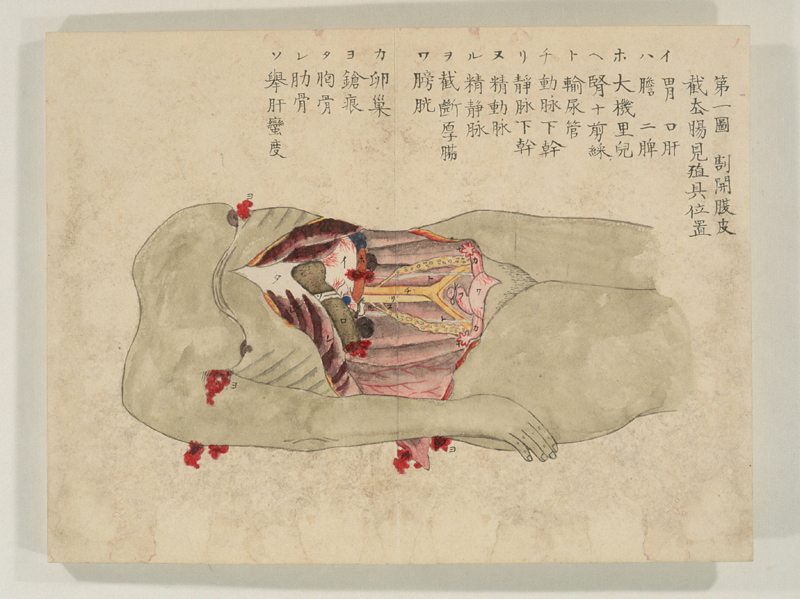 第一圖 割開腹皮
截厺腸見殖具位置
イ 胃 ロ 肝
ハ 膽 ニ 脾
ホ 大機里兒
ヘ 腎十剪綵
ト 輸尿管
チ 動脉下幹
リ 靜脉下幹
ヌ 精動脉
ル 精静脉
ヲ 截斷厚腸
ワ 膀胱
カ 卵巢
ヨ 鎗痕
タ 胸骨
レ 肋骨
ソ 擧肝蠻度
ヨ
タ
イ
ロ
レ
チ
ト
ト
カ
ワ
カ
ヨ
ヨ